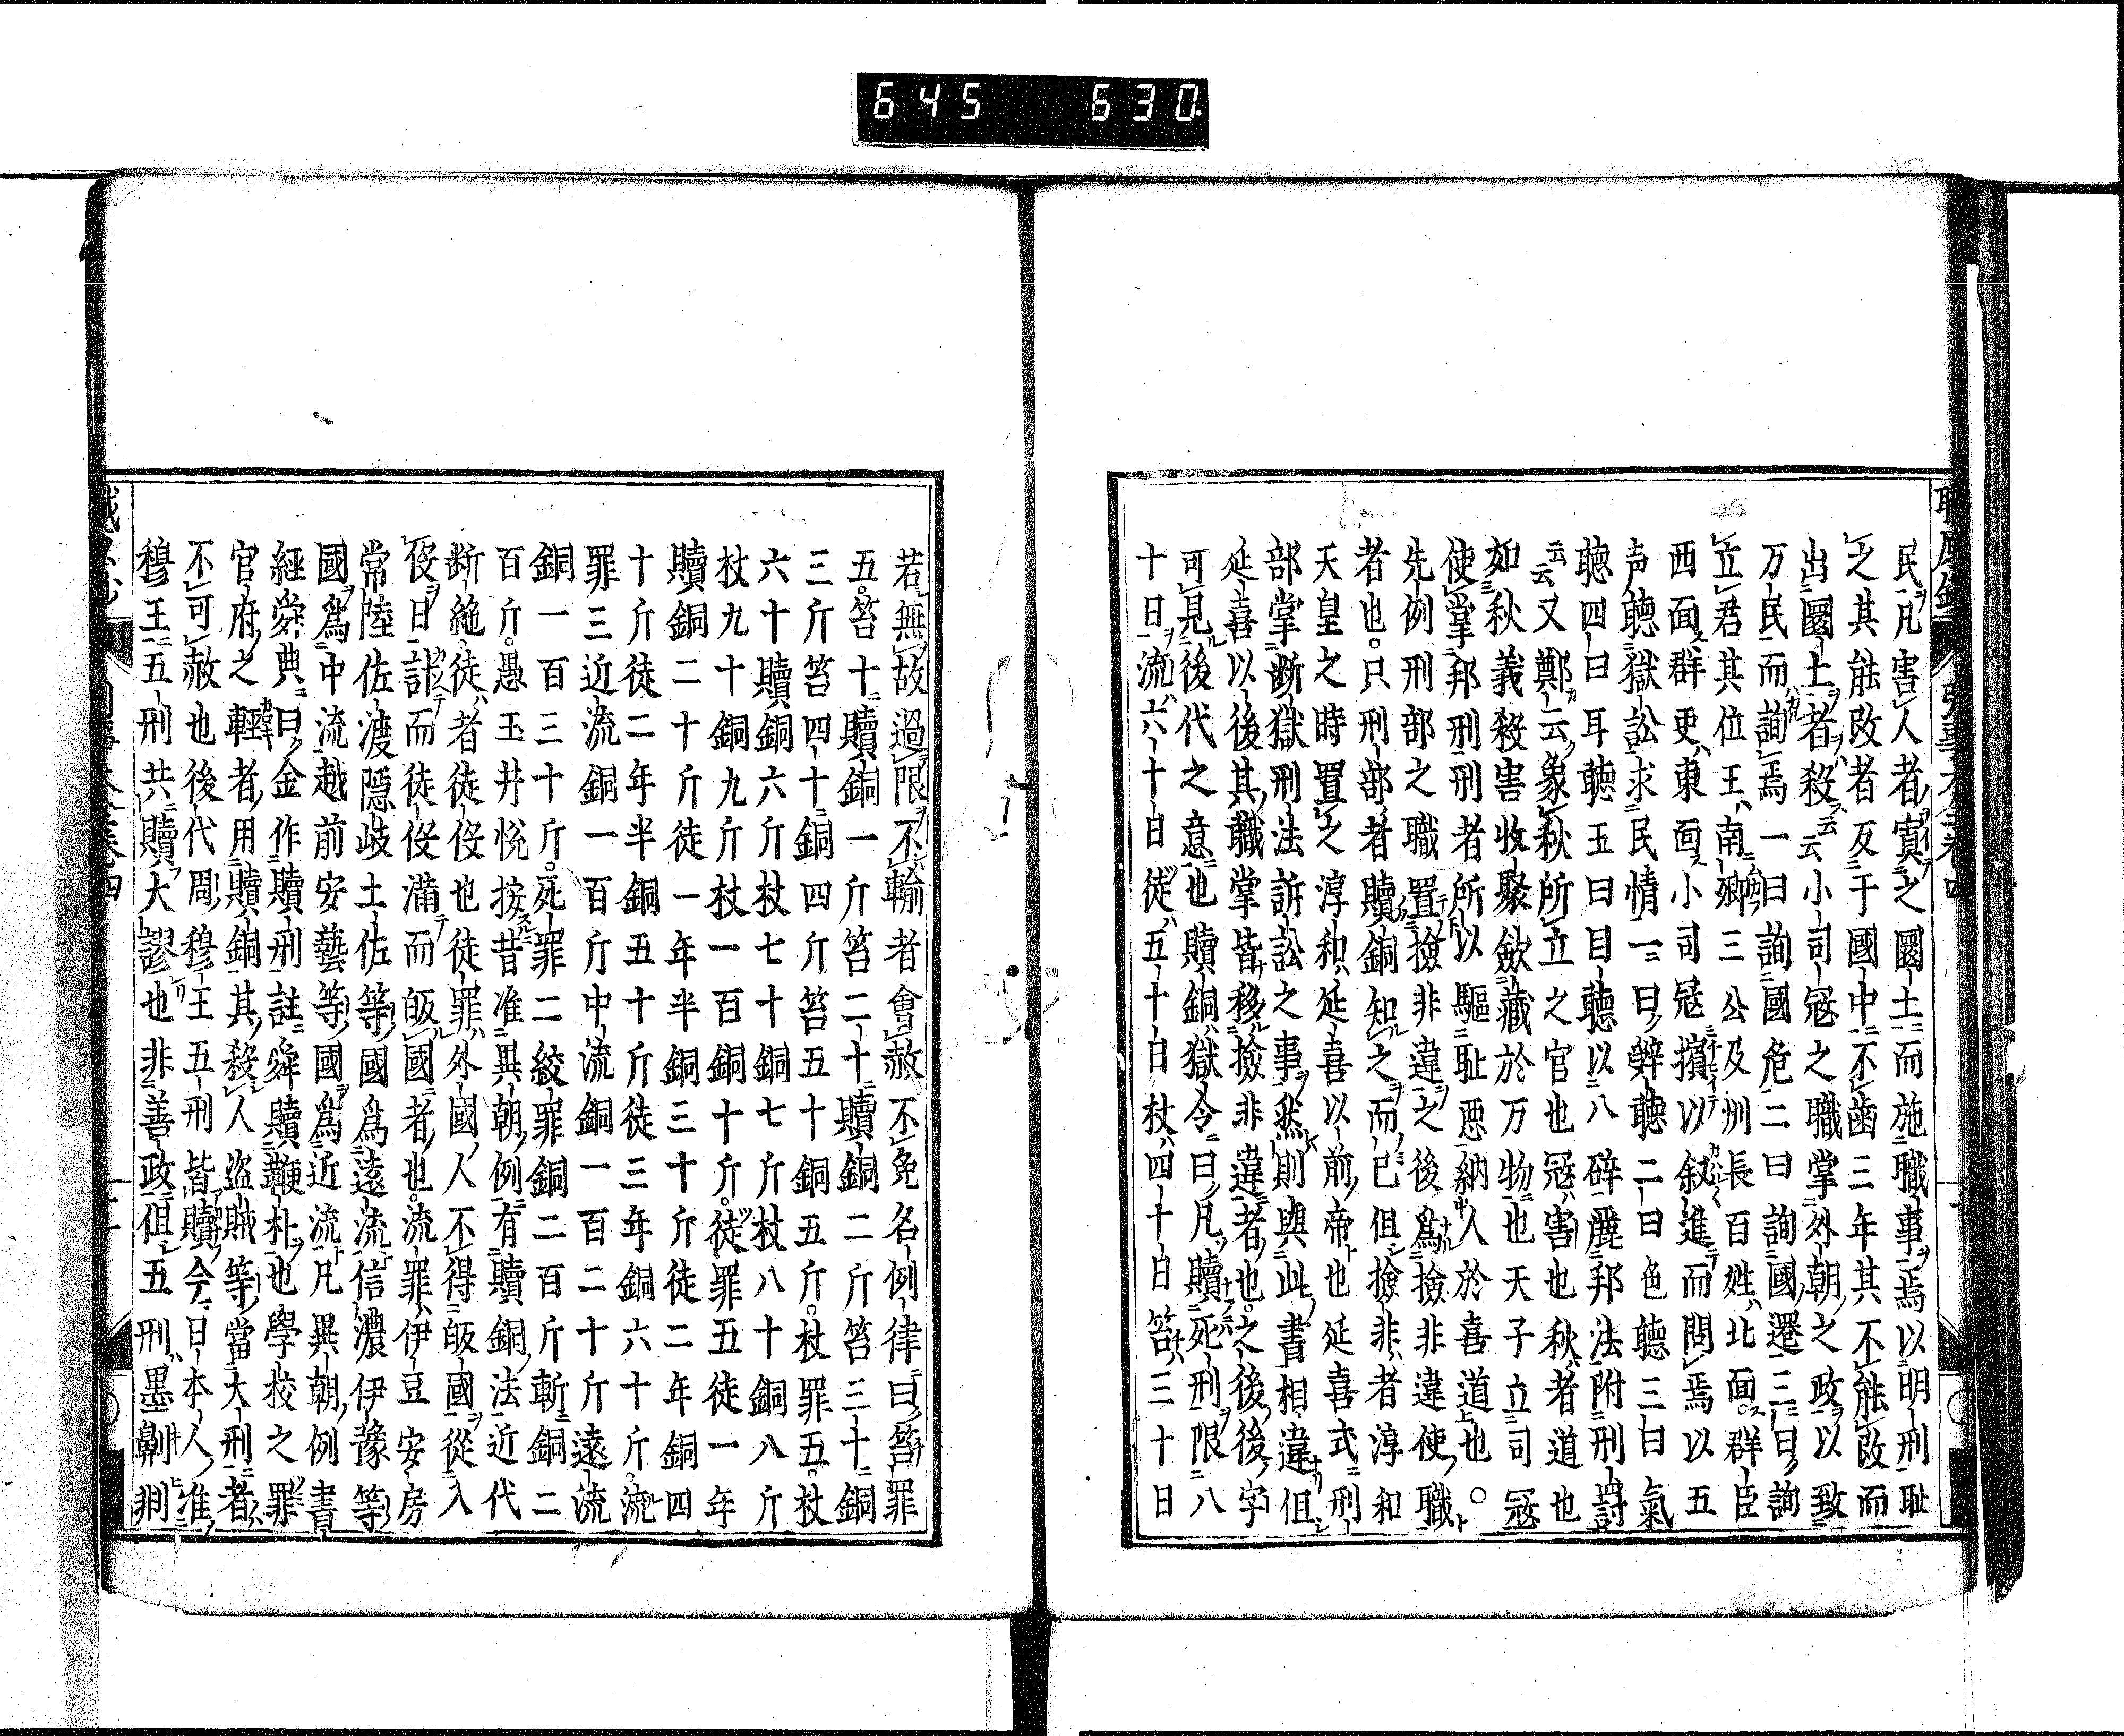 645 630
民凡害人者寘之圜土而施職事焉以明刑耻
之其能改者反于國中不歯三年其不能改而
出圜土者殺云云小司冦之職掌外朝之政以致
万民而詢焉一曰詢國危二曰詢國遷三曰詢
立君其位王南郷三公及洲長百姓北面群臣
西面群吏東面小司冦擯以叙進而問焉以五
声聴獄訟求民情一曰辞聴二曰色聴三曰氣
聴四曰耳聴五曰目聴以八辟麗邦法附刑罸
云云又鄭云象秋所立之官也冦害也秋者道也
如秋義殺害收聚歛藏於万物也天子立司冦
使掌邦刑刑者所以驅耻悪納人於善道也○
先例刑部之職置撿非違之後爲撿非違使職
者也只刑部者贖銅知之而已但撿非者淳和
天皇之時置之淳和延喜以前帝也延喜式刑
部掌断獄刑法訴訟之事然則與此書相違但
延喜以後其職掌皆移撿非違者也之後後字
可見後代之意也贖銅獄令曰凡贖死刑限八
十日流六十日徒五十日杖四十日笞三十日
若無故過限不輸者會赦不免名例律曰笞罪
五笞十贖銅一斤笞二十贖銅二斤笞三十銅
三斤笞四十銅四斤笞五十銅五斤杖罪五杖
六十贖銅六斤杖七十銅七斤杖八十銅八斤
杖九十銅九斤杖一百銅十斤徒罪五徒一年
贖銅二十斤徒一年半銅三十斤徒二年銅四
十斤徒二年半銅五十斤徒三年銅六十斤流
罪三近流銅一百斤中流銅一百二十斤遠流
銅一百三十斤死罪二絞罪銅二百斤斬銅二
百斤愚玉井悦按昔准異朝例有贖銅法近代
断絶徒者徒役也徒罪外國人不得皈國從入
役日計而徒役滿而皈國者也流罪伊豆安房
常陸佐渡隠岐土佐等國爲遠流信濃伊豫等
國爲中流越前安藝等國爲近流凡異朝例書
經舜典曰金作贖刑註舜贖鞭朴也學校之罪
官府之輕者用贖銅其殺人盗賊等當大刑者
不可赦也後代周穆王五刑皆贖今日本人准
穆王五刑共贖大謬也非善政但五刑墨劓剕